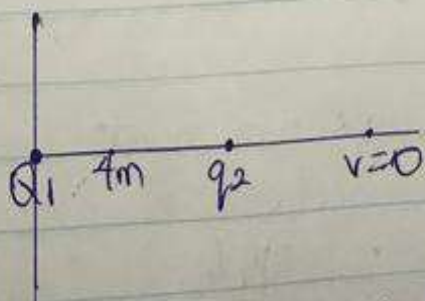 Q1 4m q2 v=0